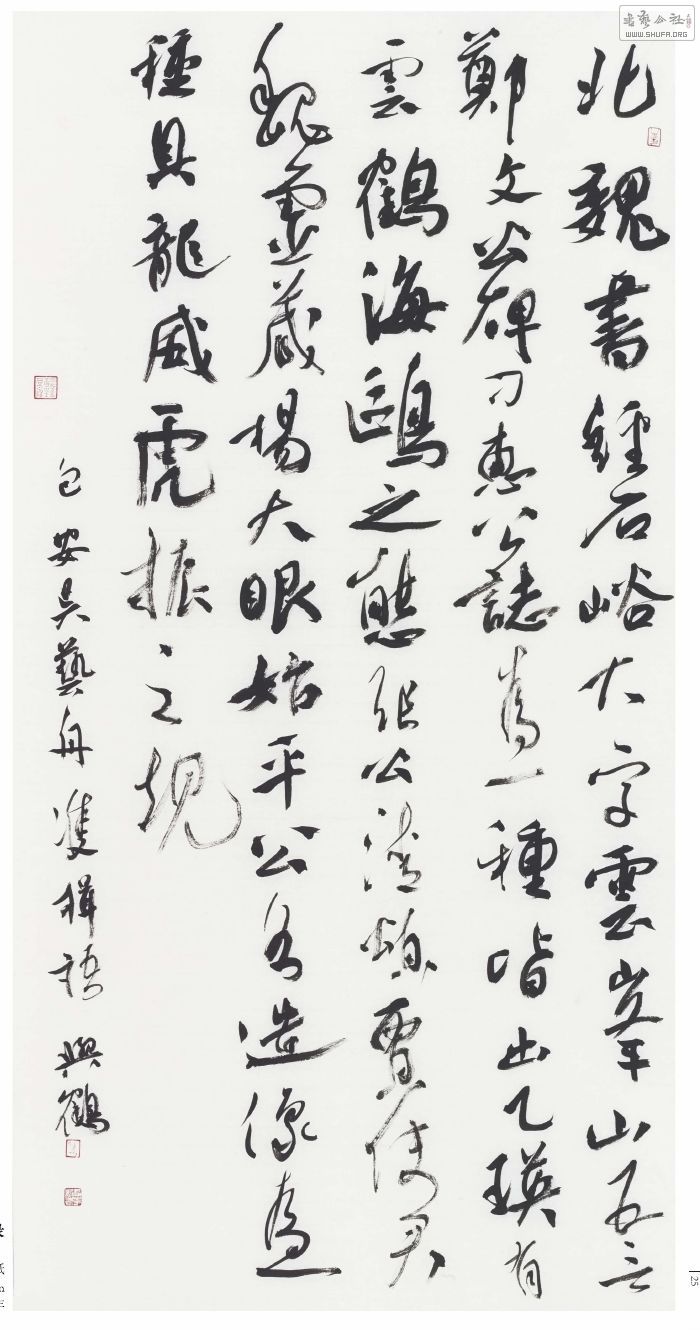 書藝公社
WWW.SHUFA.ORG
北魏書經石峪大字雲峯山五言
鄭文公碑刁惠公誌為一種皆出乙瑛有
雲鶴海鷗之態張公清頌賈使君
魏靈藏楊大眼始平公各造像為一
種具龍威虎振之規
包安吳藝舟雙楫語 興鶴
25